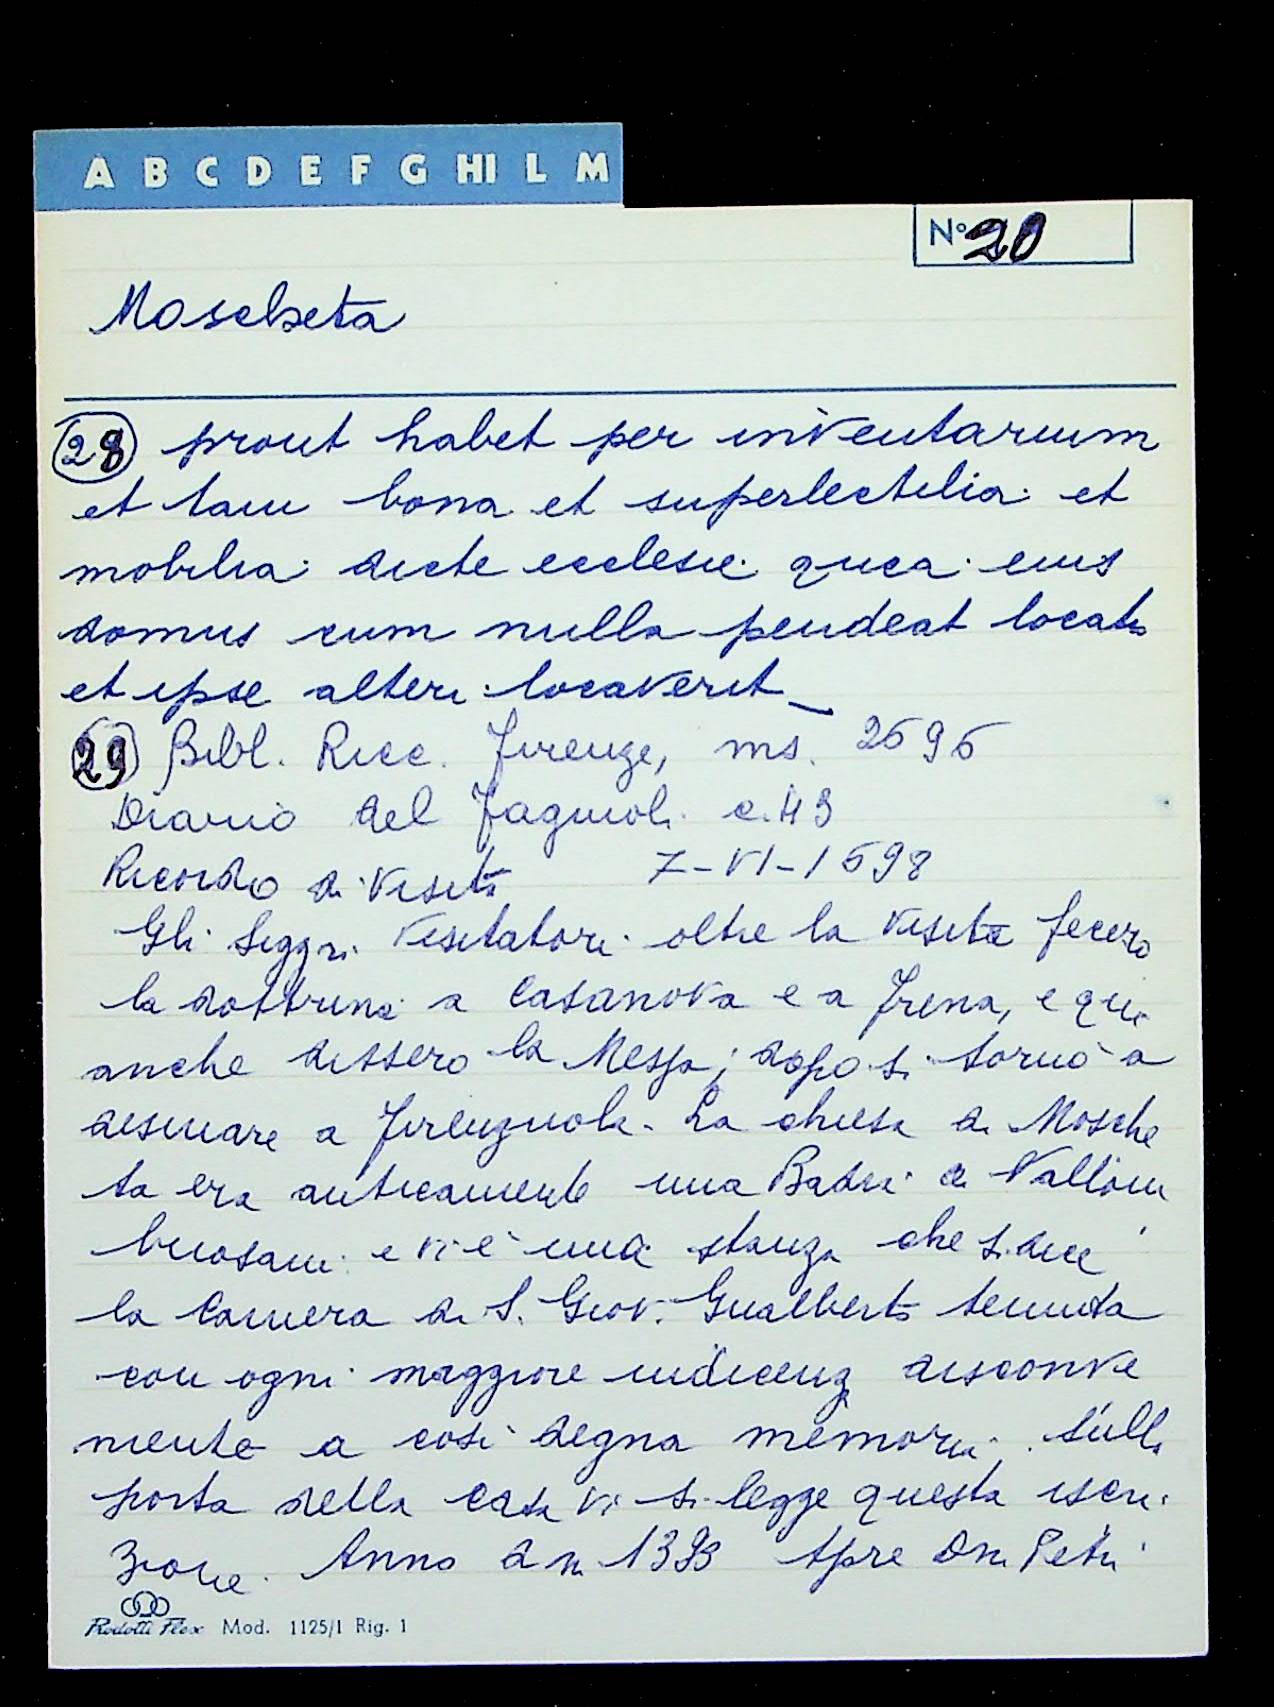 A B C D E F G HI L M
N° 20
Moscheta
28 prout habet per inventarium
et tam bona et superlectilia et
mobilia dicte ecclesie quea eius
domus cum nulla pendeat locatio
et ipse alteri locaverit
29 Bibl. Ricc. Firenze, ms. 2695
Diario del Fagiuoli c. 43
Ricordo di Visita 7-VI-1698
Gli Siggri Visitatori oltre la visita fecero
la dottrina a Casanova e a Frena, e qui
anche dissero la Messa; dopo si tornò a
desinare a Firenzuola. La chiesa di Mosche
ta era anticamente una Badia di Vallom
brosani e vi è una stanza che si dice
la Camera di S. Giov. Gualberto tenuta
con ogni maggiore indicenza disconve
niente a così degna memoria. Sulla
porta della casa vi si legge questa iscri
zione. Anno dni 1393 tpre Dni Petri
Prodotti Flex Mod. 1125/1 Rig. 1